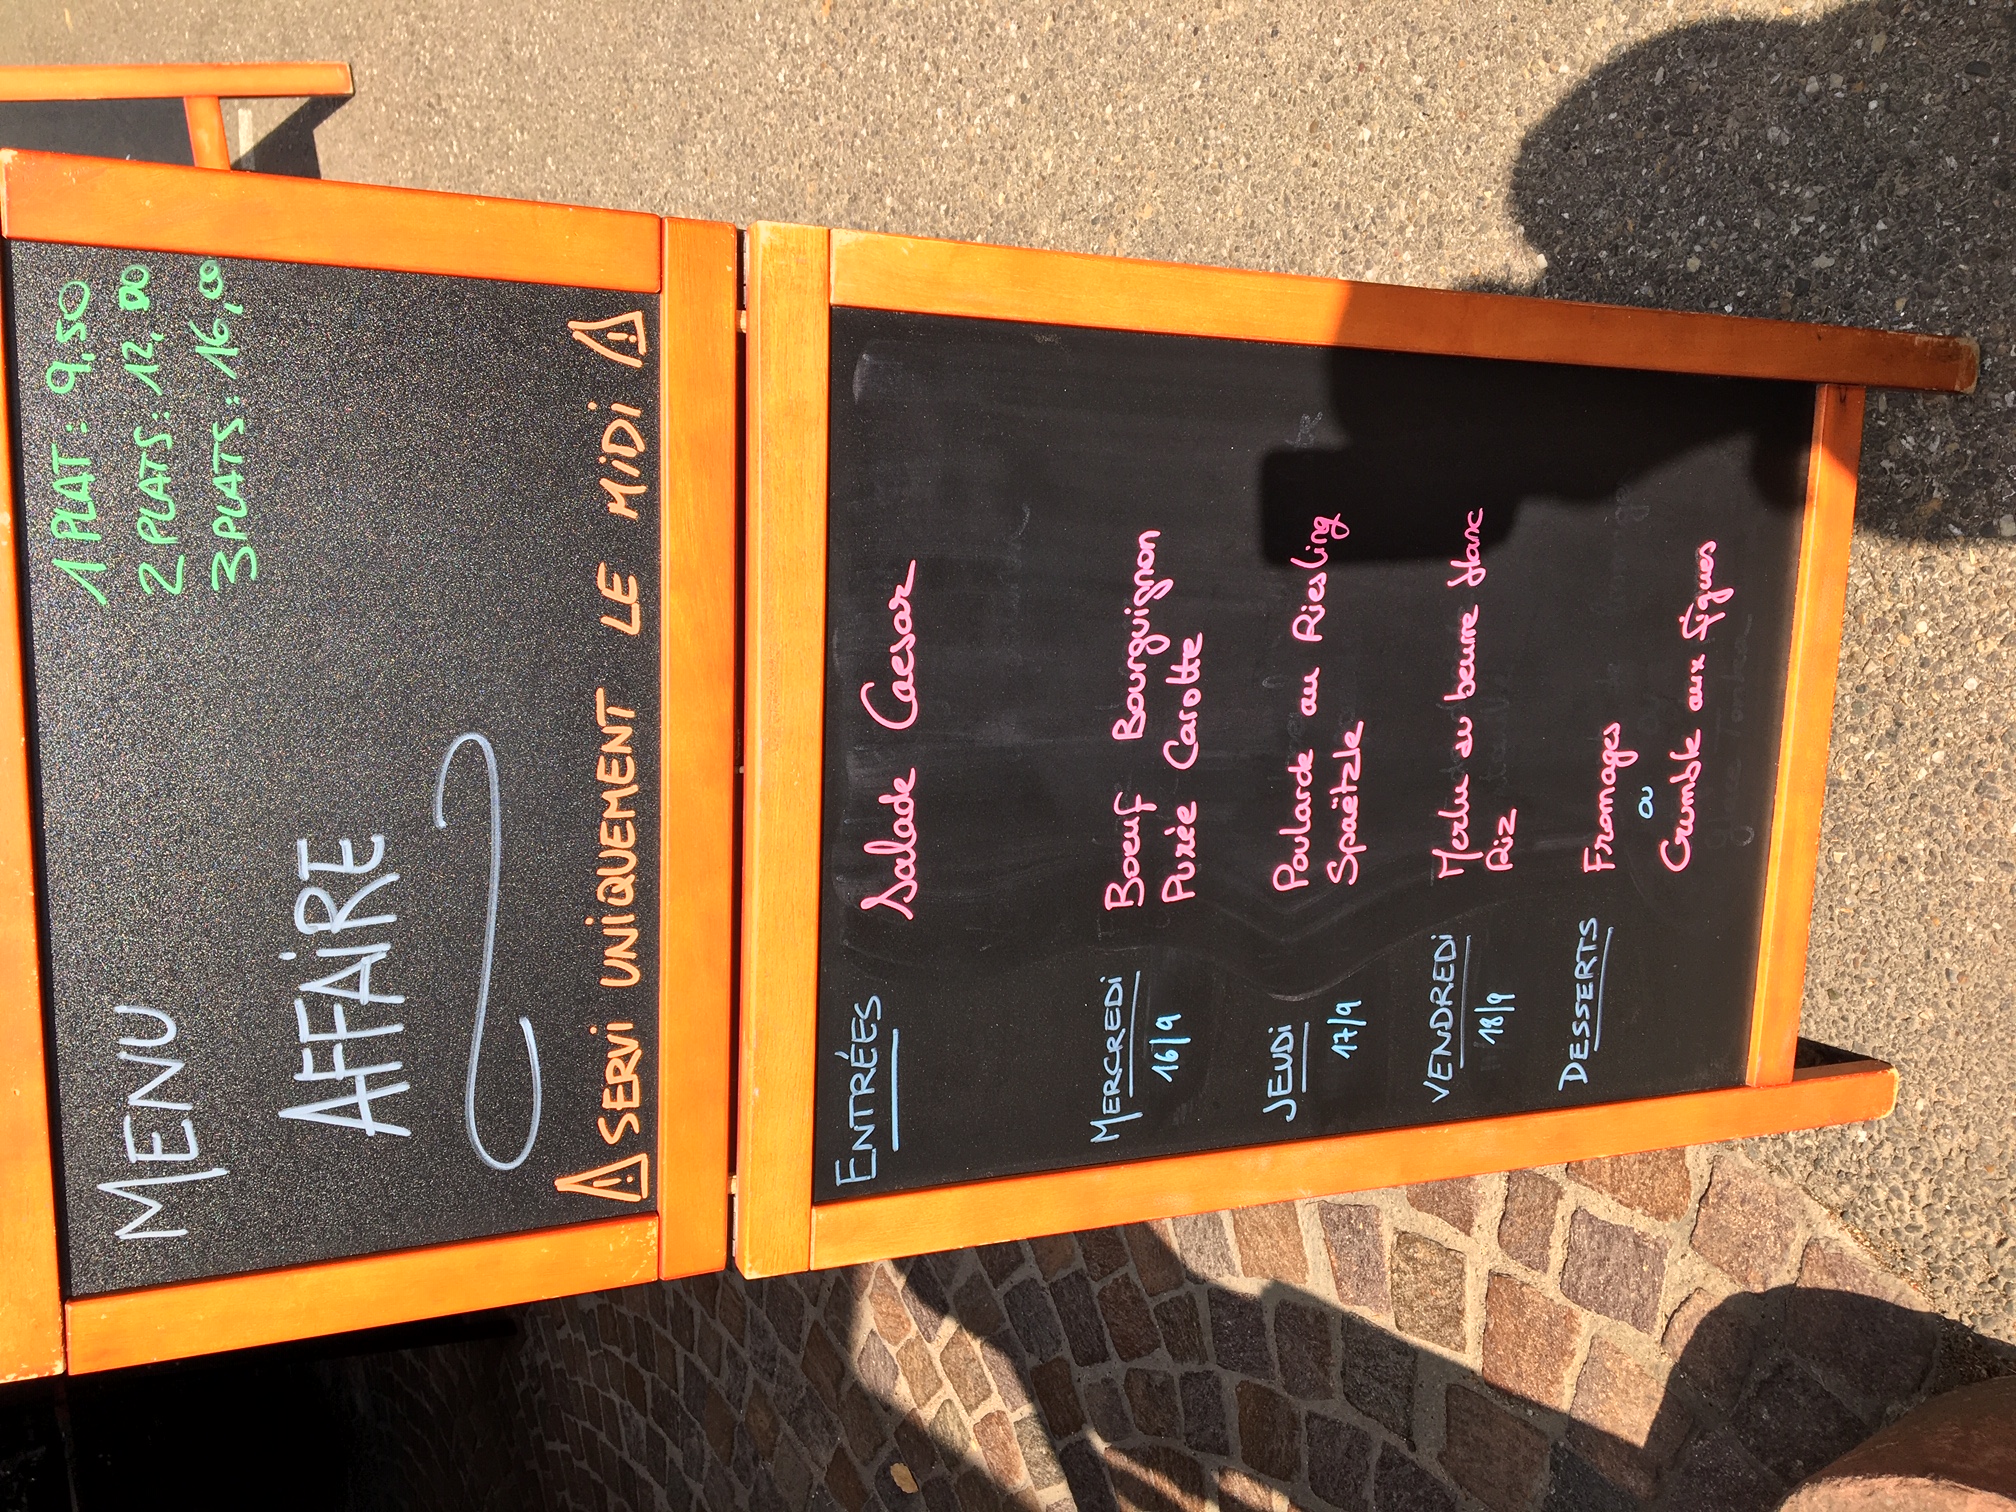 MENU
AFFAIRE
1 PLAT : 9,50
2 PLATS : 12,00
3 PLATS : 16,0
⚠ SERVI UNIQUEMENT LE MIDI ⚠
ENTRÉES
Salade Caesar
MERCREDI
16/9
Boeuf Bourguignon
Purée Carotte
JEUDI
17/9
Poularde au Riesling
Spaëtzle
VENDREDI
18/9
Merlu au beurre blanc
Riz
DESSERTS
Fromages
ou
Crumble aux figues